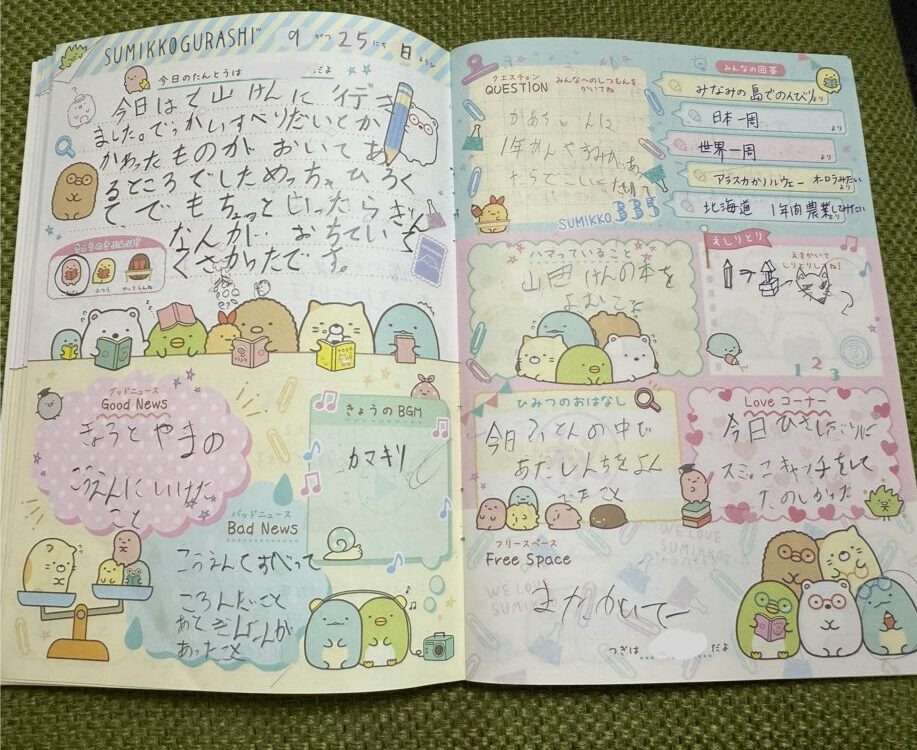 SUMIKKOGURASHI™ 9 がつ 25 にち 日 ようび
今日のたんとうは だよ
今日は 山 けんに 行き
ました。でっかいすべりだいとか
かわったものが おいてあ
るところでしためっちゃひろく
て、でもちょっといったらぎん
なんが おちていて
くさかったです。
きょうのきぶんは?
ふつう
グッドニュース
Good News
きょうとやまの
こうえんにいけた
こと
きょうの BGM
カマキリ
バッドニュース
Bad News
こうえんですべって
ころんだこと
あとぎんなんが
あったこと
クエスチョン みんなへのしつもんを
QUESTION かいてね
かあちゃんに
1年かんやすみがあっ
たらどこいきたい
SUMIKKO
みんなの回答
みなみの島でのんびり より
日本一周 より
世界一周 より
アラスカかノルウェー オーロラみたい より
北海道 1年間農業してみたい より
ハマっていること
山田けんの本を
よむこと
えしりとり
えをかいて
しりとりしてね!
1 2 3
ひみつのおはなし
今日ふとんの中で
あたしんちをよん
できたこと
Love コーナー
今日ひさしぶりに
スミッコキャッチをして
たのしかった
フリースペース
Free Space
WE LOVE
SUMIKKO
またかいてー
つぎは だよ